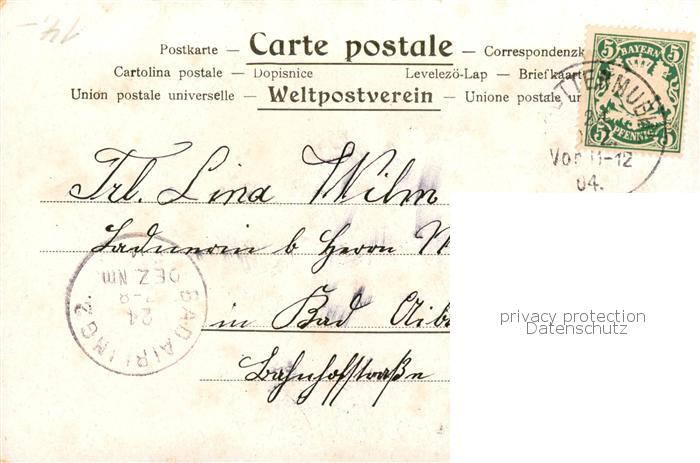 14,-
Postkarte — Carte postale — Correspondenzk
Cartolina postale — Dopisnice Levelezö-Lap — Briefkaart
Union postale universelle — Weltpostverein — Unione postale un
5 BAYERN 5
5 PFENNIG 5
Vor 11-12
04.
Frl. Lina Wilm
Ladnerin b Herrn
in Bad Aib
Bahnhofstraße
BAD AIBLING 2
24
7-8
DEZ Nm
privacy protection
Datenschutz